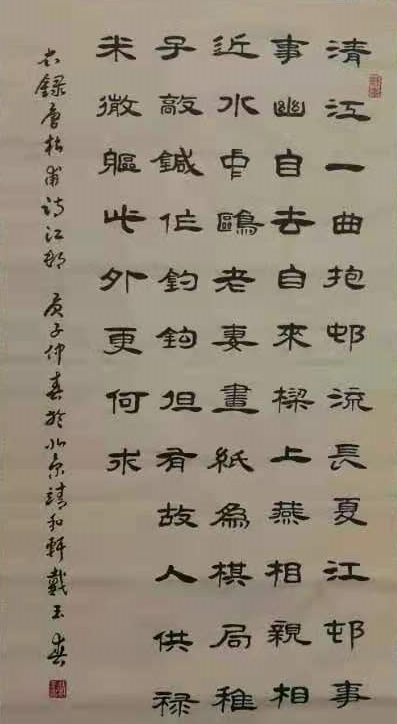 清江一曲抱邨流長夏江邨事
事幽自去自來樑上燕相親相
近水中鷗老妻畫紙為棋局稚
子敲鍼作釣鉤但有故人供祿
米微軀此外更何求
錄唐杜甫詩江邨 庚子仲春於北京靖和軒戴玉